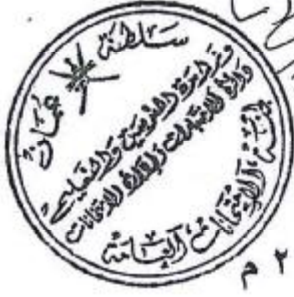 سلطنة عمان
وزارة التربية والتعليم
دائرة الاختبارات وإدارة الامتحانات
قسم الامتحانات العامة
٢ م